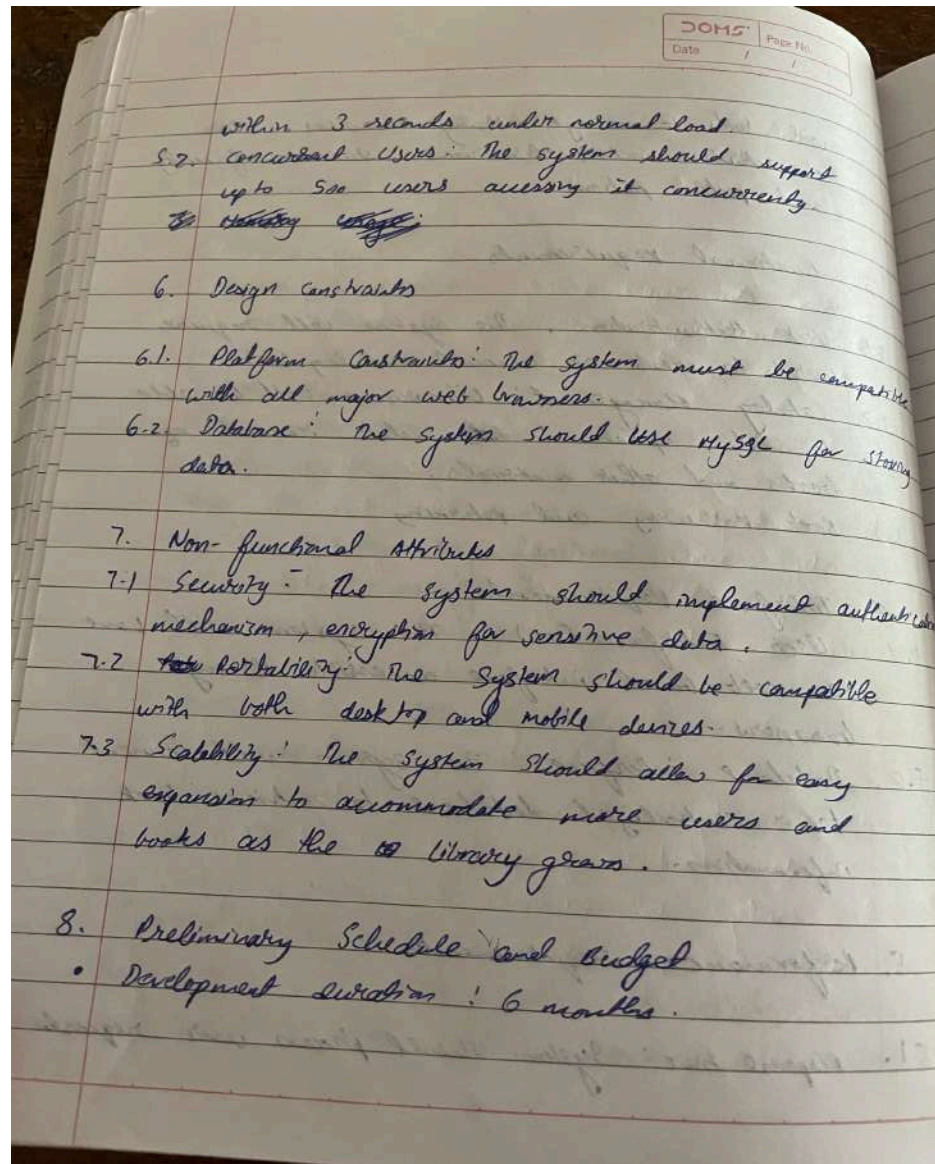 DOMS
Page No.
Date / /
within 3 seconds under normal load.
5.2. concurrent Users: The system should support
upto 500 users acessing it concurrently.
6. Design constraints
6.1. Platform Constraints: The system must be compatible
with all major web browsers.
6.2 Database: The system should use MySQL for storing
data.
7. Non-functional Attributes
7.1 Security: The system should implement authentication
mechanism, encryption for sensitive data.
7.2 Portability: The system should be compatible
with both desktop and mobile devices.
7.3 Scalability: The system should allow for easy
expansion to accommodate more users and
books as the library grows.
8. Preliminary Schedule and Budget
• Development duration: 6 months.